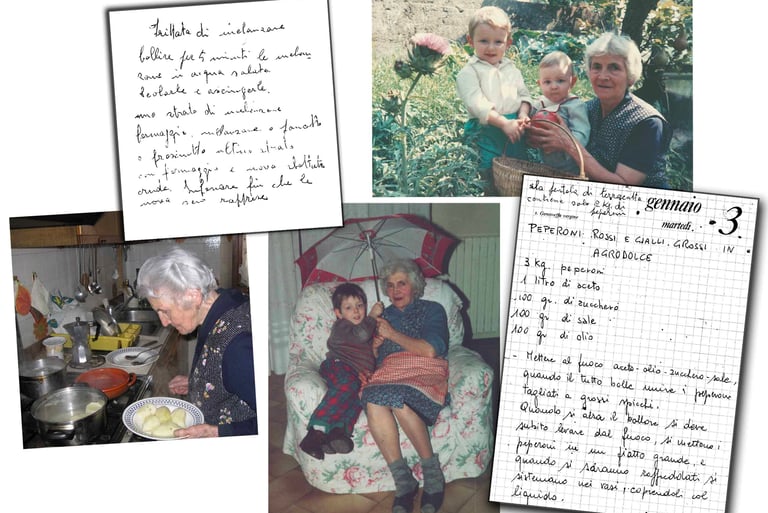 Frittata di melanzane
bollire per 5 minuti le melan
zane in acqua salata
Scolarle e asciugarle.
uno strato di melanzane
formaggio, melanzane o pancetta
o prosciutto ultimo strato
con formaggio e uova sbattute
crude. Infornare fin che le
uova sono rapprese
alla pentola di terracotta
contiene solo 2 kg di
peperoni
gennaio
3
martedì
s. Genoveffa vergine
PEPERONI ROSSI E GIALLI GROSSI IN
AGRODOLCE
3 kg. peperoni
1 litro di aceto
100 gr. di zucchero
100 gr. di sale
100 gr di olio
- Mettere al fuoco aceto-olio-zucchero-sale,
quando il tutto bolle unire i peperoni
tagliati a grossi spicchi.
Quando si alza il bollore si deve
subito levare dal fuoco, si mettono i
peperoni in un piatto grande, e
quando si saranno raffreddati si
sistemano nei vasi, coprendoli col
liquido.